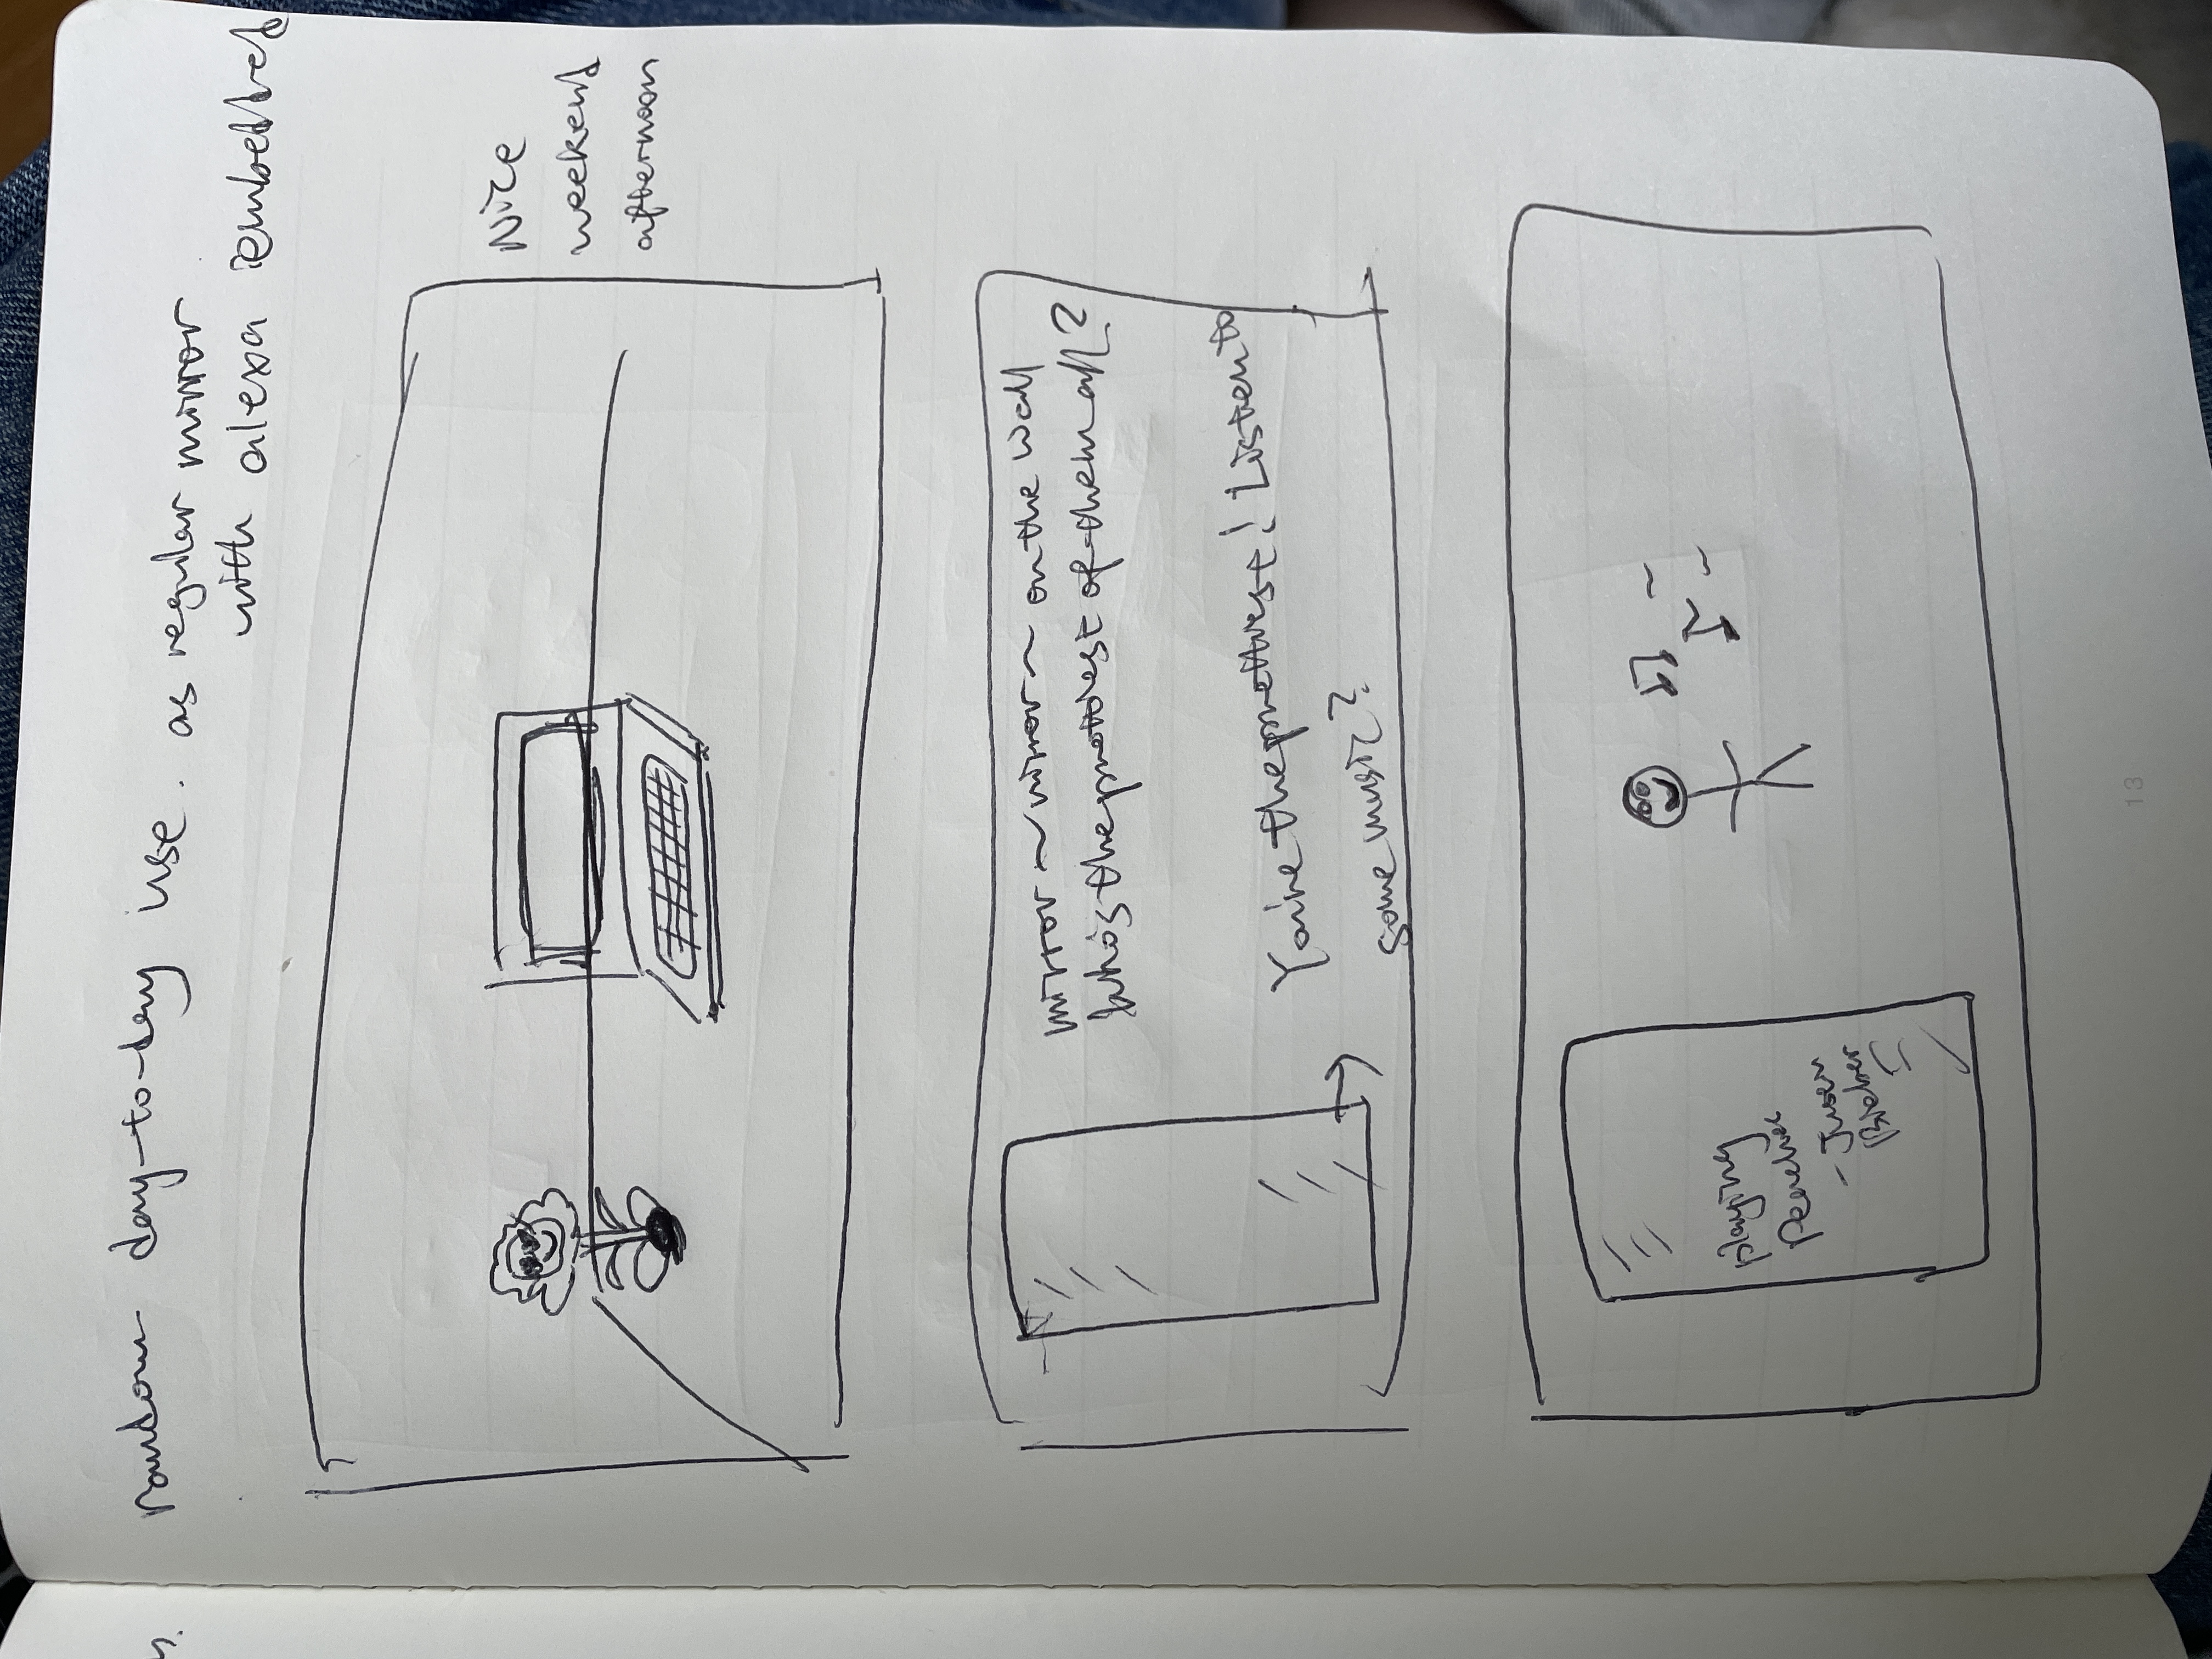 random day-to-day use. as regular mirror
with alexa embedded
Nice
weekend
afternoon
mirror ~ mirror ~ on the wall
who's the prettiest of them all?
You're the prettiest! Listen to
some music?
playing
Peaches
- Jusen
Bieber
13